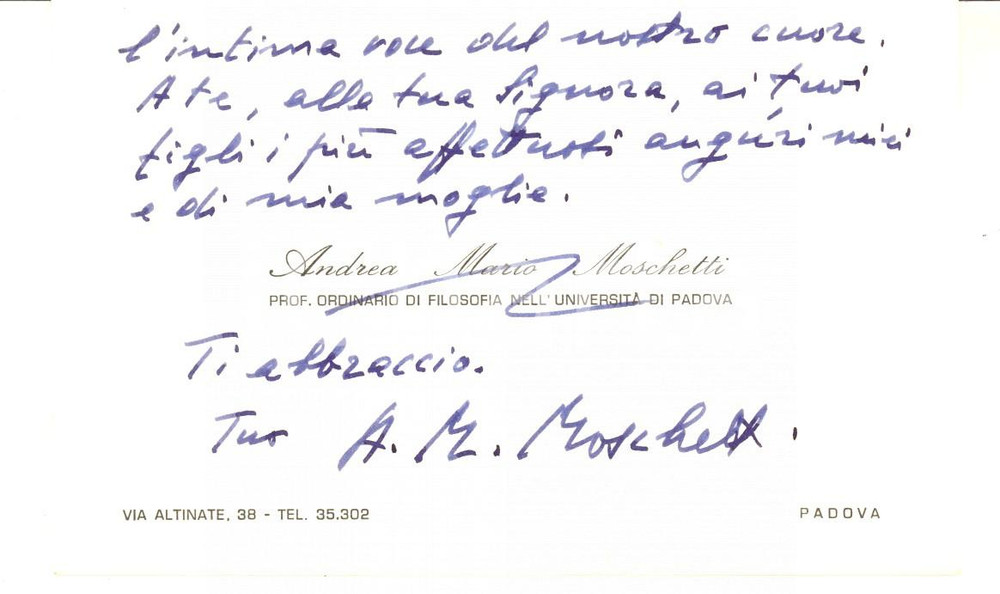 l'intima voce del nostro cuore.
A te, alla tua Signora, ai tuoi
figli i più affettuosi auguri miei
e di mia moglie.
Andrea Mario Moschetti
PROF. ORDINARIO DI FILOSOFIA NELL'UNIVERSITÀ DI PADOVA
Ti abbraccio.
Tuo A. M. Moschetti.
VIA ALTINATE, 38 - TEL. 35.302
PADOVA